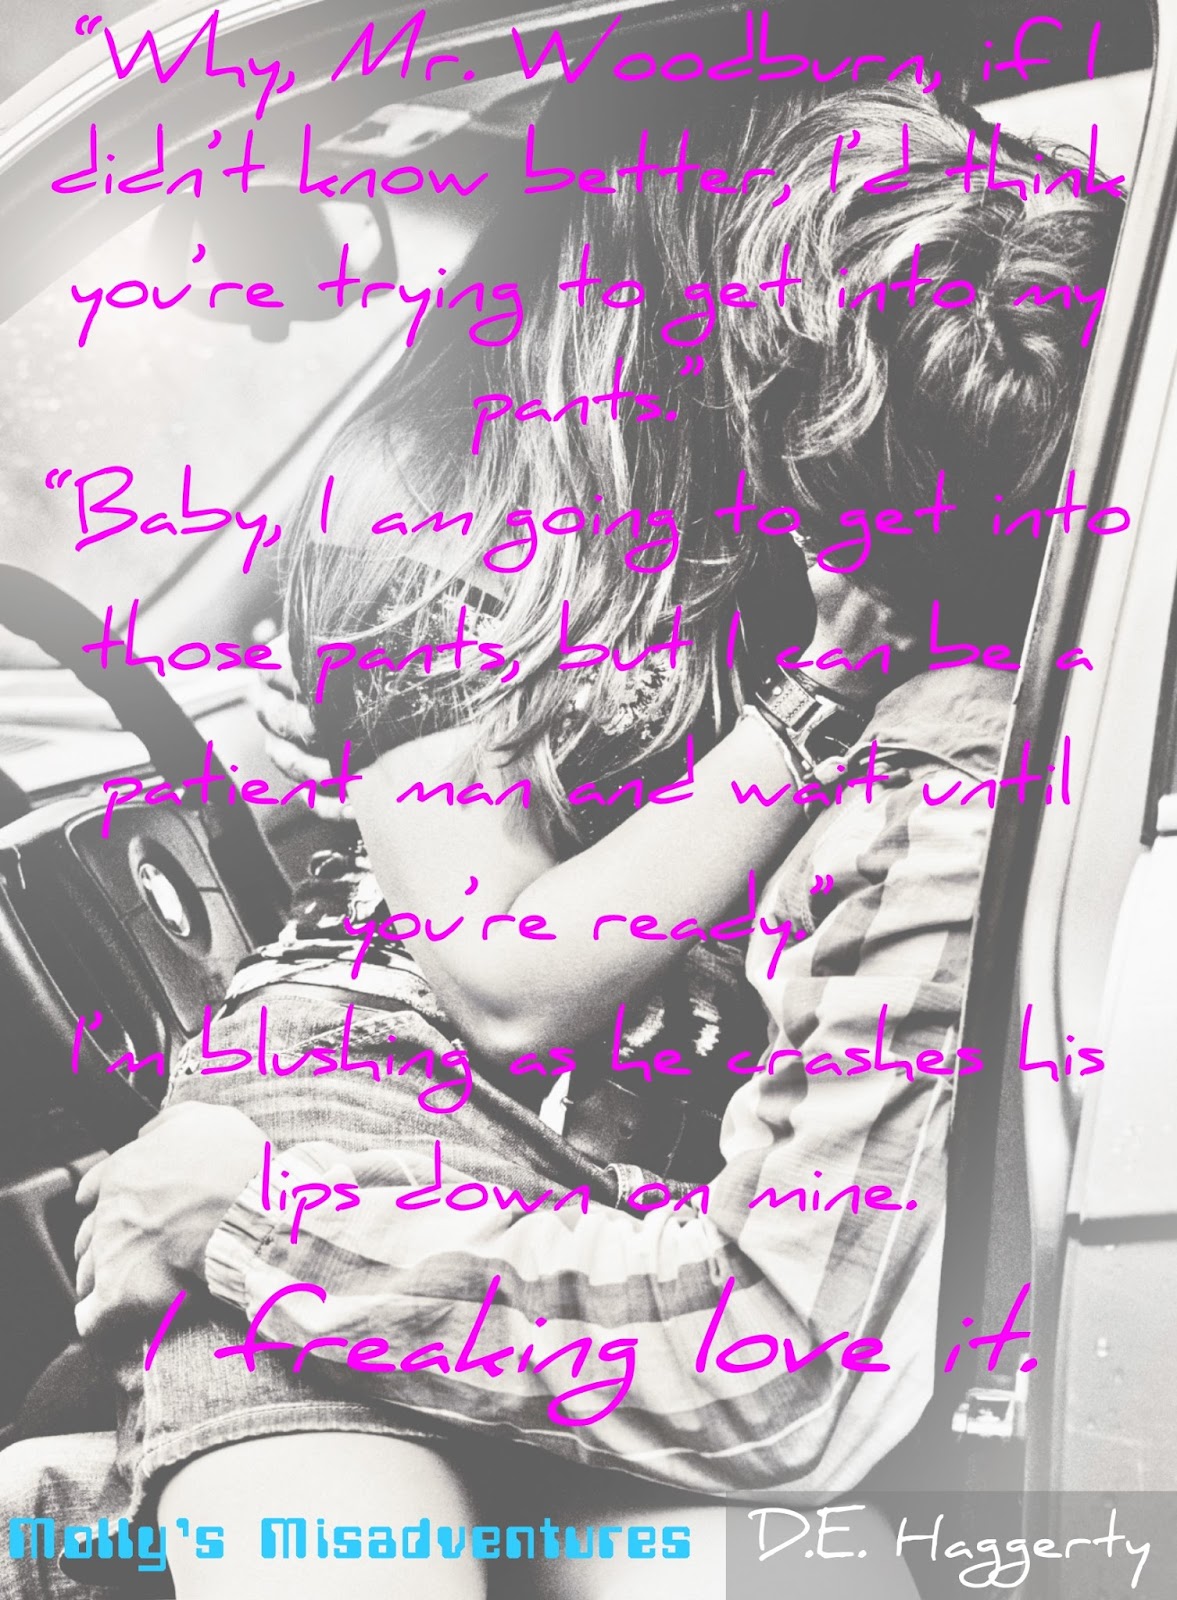 “Why, Mr. Woodburn, if I
didn't know better, I'd think
you're trying to get into my
pants.”
“Baby, I am going to get into
those pants, but I can be a
patient man and wait until
you're ready.”
I'm blushing as he crashes his
lips down on mine.
I freaking love it.
Molly's Misadventures
D.E. Haggerty